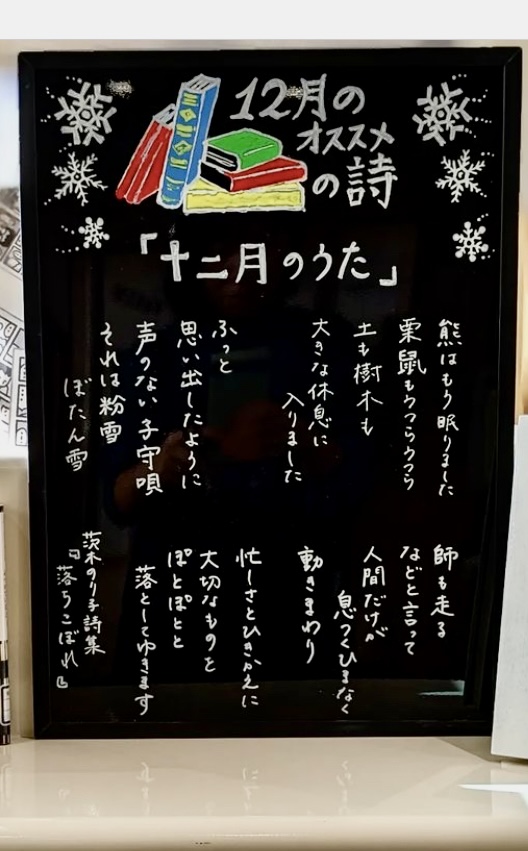 12月の
オススメ
の詩
「十二月のうた」
熊はもう眠りました
栗鼠もうつらうつら
土も樹木も
大きな休息に
入りました
ふっと
思い出したように
声のない子守唄
それは粉雪
ぼたん雪
師も走る
などと言って
人間だけが
息つくひまなく
動きまわり
忙しさとひきかえに
大切なものを
ぽとぽとと
落としてゆきます
茨木のり子詩集
『落ちこぼれ』